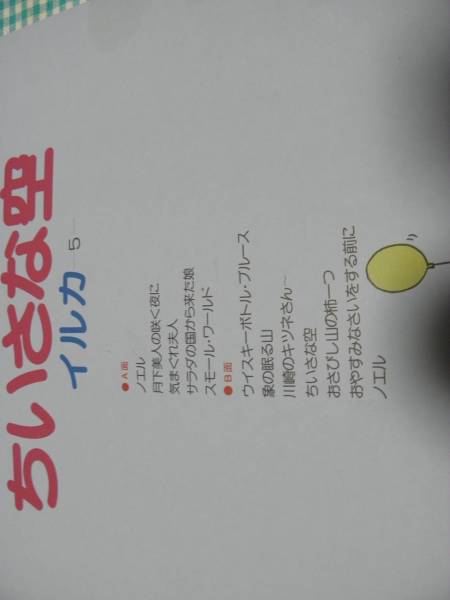 ちいさな空
イルカ 5
●A面
ノエル
月下美人の咲く夜に
気まぐれ夫人
サラダの国から来た娘
スモール・ワールド
●B面
ウイスキーボトル・ブルース
象の眠る山
川崎のキツネさん…
ちいさな空
おさびし山の柿一つ
おやすみなさいをする前に
ノエル